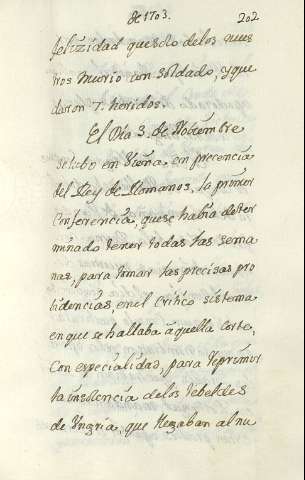 de 1703. 202
felizidad que solo de los nues
tros Murio con soldado, y que
daron 7. heridos.
El Dia 3. de Noviembre
se tubo en Viena, en precencia
del Rey de Romanos, la primer
Conferencia, que se habia deter
minado tener todas las sema
nas, para tomar las precisas pro
bidencias, en el critico sistema
en que se hallaba aquella Corte,
Con especialidad, para reprimir
la insolencia de los rebeldes
de Ungria, que llegaban al nu